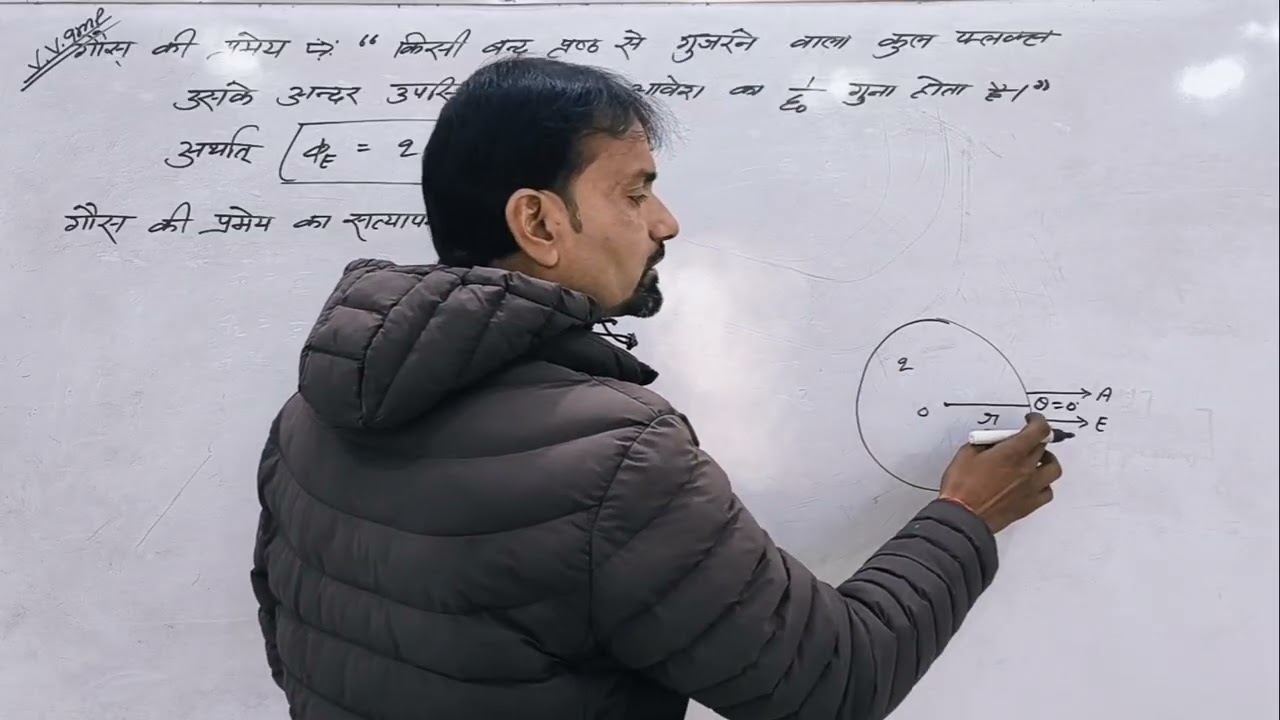 V.V.Imp
गौस की प्रमेय ⇒ "किसी बन्द पृष्ठ से गुजरने वाला कुल फ्लक्स
उसके अन्दर उपस्थि आवेश का 1/ε₀ गुना होता है।"
अर्थात् ϕE = q
गौस की प्रमेय का सत्याप
q
A
O
r
θ=0°
E